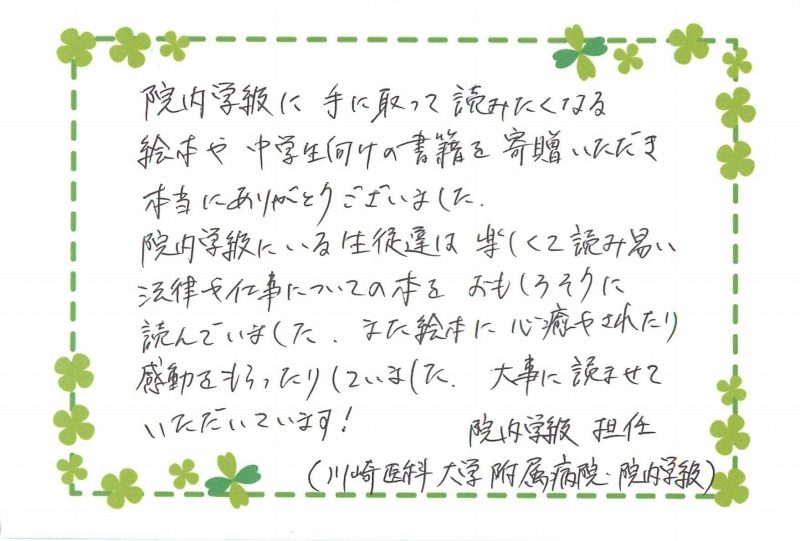 院内学級に 手に取って読みたくなる
絵本や 中学生向けの書籍を 寄贈いただき
本当にありがとうございました.
院内学級にいる生徒達は 楽しくて読み易い
法律や仕事についての本を おもしろそうに
読んでいました. また絵本に 心癒やされたり
感動をもらったりしていました. 大事に読ませて
いただいています!
院内学級 担任
(川崎医科大学附属病院・院内学級)